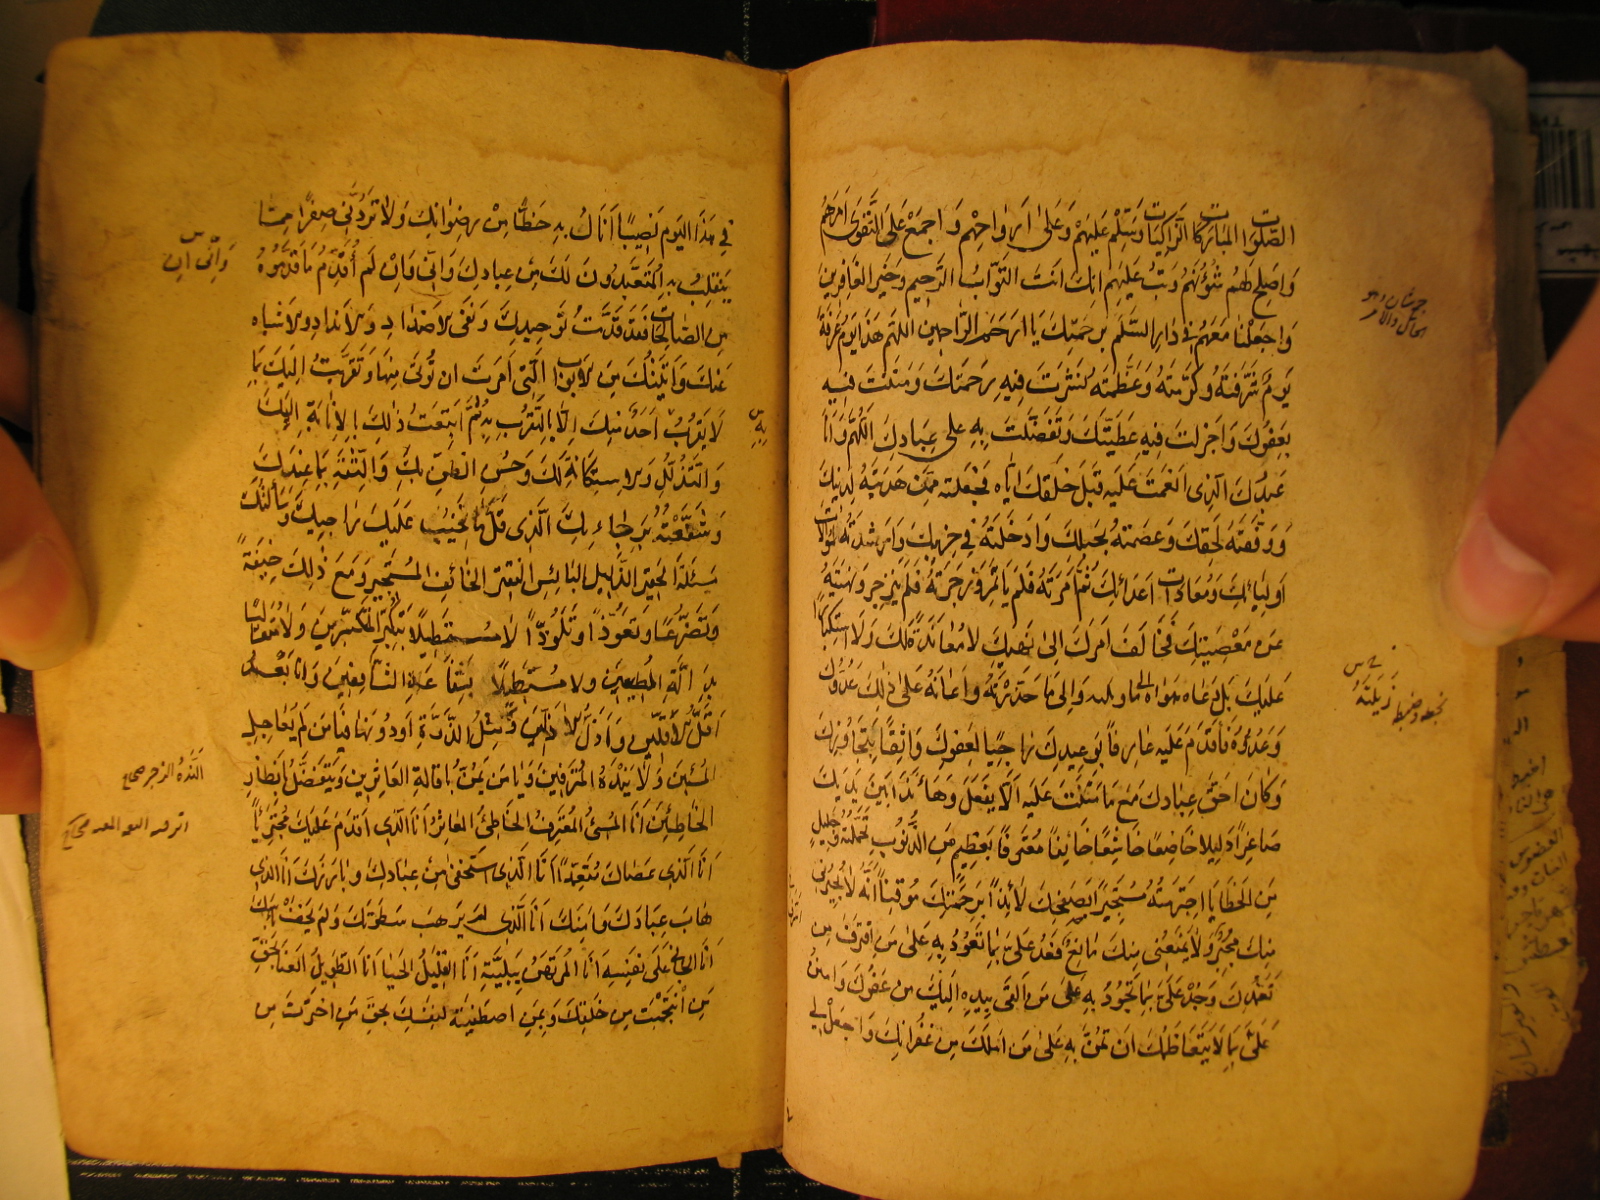 الصلوات المباركات الزاكيات وسلم عليهم وعلى ارواحهم واجمع على التقوى امرهم
واصلح لهم شؤنهم وتب عليهم انك انت التواب الرحيم وخير الغافرين
واجعلنا معهم في دار السلام برحمتك يا ارحم الراحمين اللهم هذا يوم عرفة
يوم شرفته وكرمته وعظمته نشرت فيه رحمتك ومننت فيه
بعفوك واجزلت فيه عطيتك وتفضلت به على عبادك اللهم وانا
عبدك الذي انعمت عليه قبل خلقك اياه فجعلته ممن هديته لدينك
ووفقته لحقك وعصمته بحبلك وادخلته في حزبك وارشدته لموالات
اوليائك ومعادات اعدائك ثم امرته فلم ياتمر وزجرته فلم ينزجر ونهيته
عن معصيتك فخالف امرك الى نهيك لا معاندة لك ولا استكبارا
عليك بل دعاه هواه الى ما زيلته والى ما حذرته واعانه على ذلك عدوك
وعدوه فاقدم عليه عارفا بوعيدك راجيا لعفوك واثقا بتجاوزك
وكان احق عبادك مع ما مننت عليه الا يفعل وها انا ذا بين يديك
صاغرا ذليلا خاضعا خاشعا خائفا معترفا بعظيم من الذنوب تحملته وجليل
من الخطايا اجترمته مستجيرا بصفحك لائذا برحمتك موقنا انه لا يجيرني
منك مجير ولا يمنعني منك مانع فعد علي بما تعود به على من اقترف من
تغمدك وجد علي بما تجود به على من القى بيده اليك من عفوك وامنن
علي بما لا يتعاظمك ان تمن به على من املك من غفرانك واجعل لي
جمع شان وهو
الحال والامر
زيلته
في هذا اليوم نصيبا انال به حظا من رضوانك ولا تردني صفرا مما
ينقلب به المتعبدون لك من عبادك واني وان لم اقدم ما قدموه
من الصالحات فقد قدمت توحيدك ونفي الاضداد والانداد والاشباه
عنك واتيتك من الابواب التي امرت ان تؤتى منها وتقربت اليك بما
لا يقرب احد منك الا بالتقرب به ثم اتبعت ذلك بالانابة اليك
والتذلل والاستكانة لك وحسن الظن بك والثقة بما عندك
وشفعته برجائك الذي قل ما يخيب عليك راجيك وسألتك
مسئلة الحقير الذليل البائس الفقير الخائف المستجير ومع ذلك خيفة
وتضرعا وتعوذا وتلوذا لا مستطيلا بتكبر المتكبرين ولا متعاليا
بدالة المطيعين ولا مستطيلا بشفاعة الشافعين وانا بعد
اقل الاقلين واذل الاذلين ومثل الذرة او دونها فيا من لم يعاجل
المسئين ولا ينده المترفين ويا من يمن باقالة العاثرين ويتفضل بانظار
الخاطئين انا المسئ المعترف الخاطئ العاثر انا الذي اقدم عليك مجتريا
انا الذي عصاك متعمدا انا الذي استخفى من عبادك وبارزك انا الذي
هاب عبادك وامنك انا الذي لم يرهب سطوتك ولم يخف باسك
انا الجاني على نفسه انا المرتهن ببليته انا القليل الحيا انا الطويل العنا بحق
من انتجبت من خلقك وبمن اصطفيته لنفسك بحق من اخترت من
واني ان
به س
النده الزجر صحاح